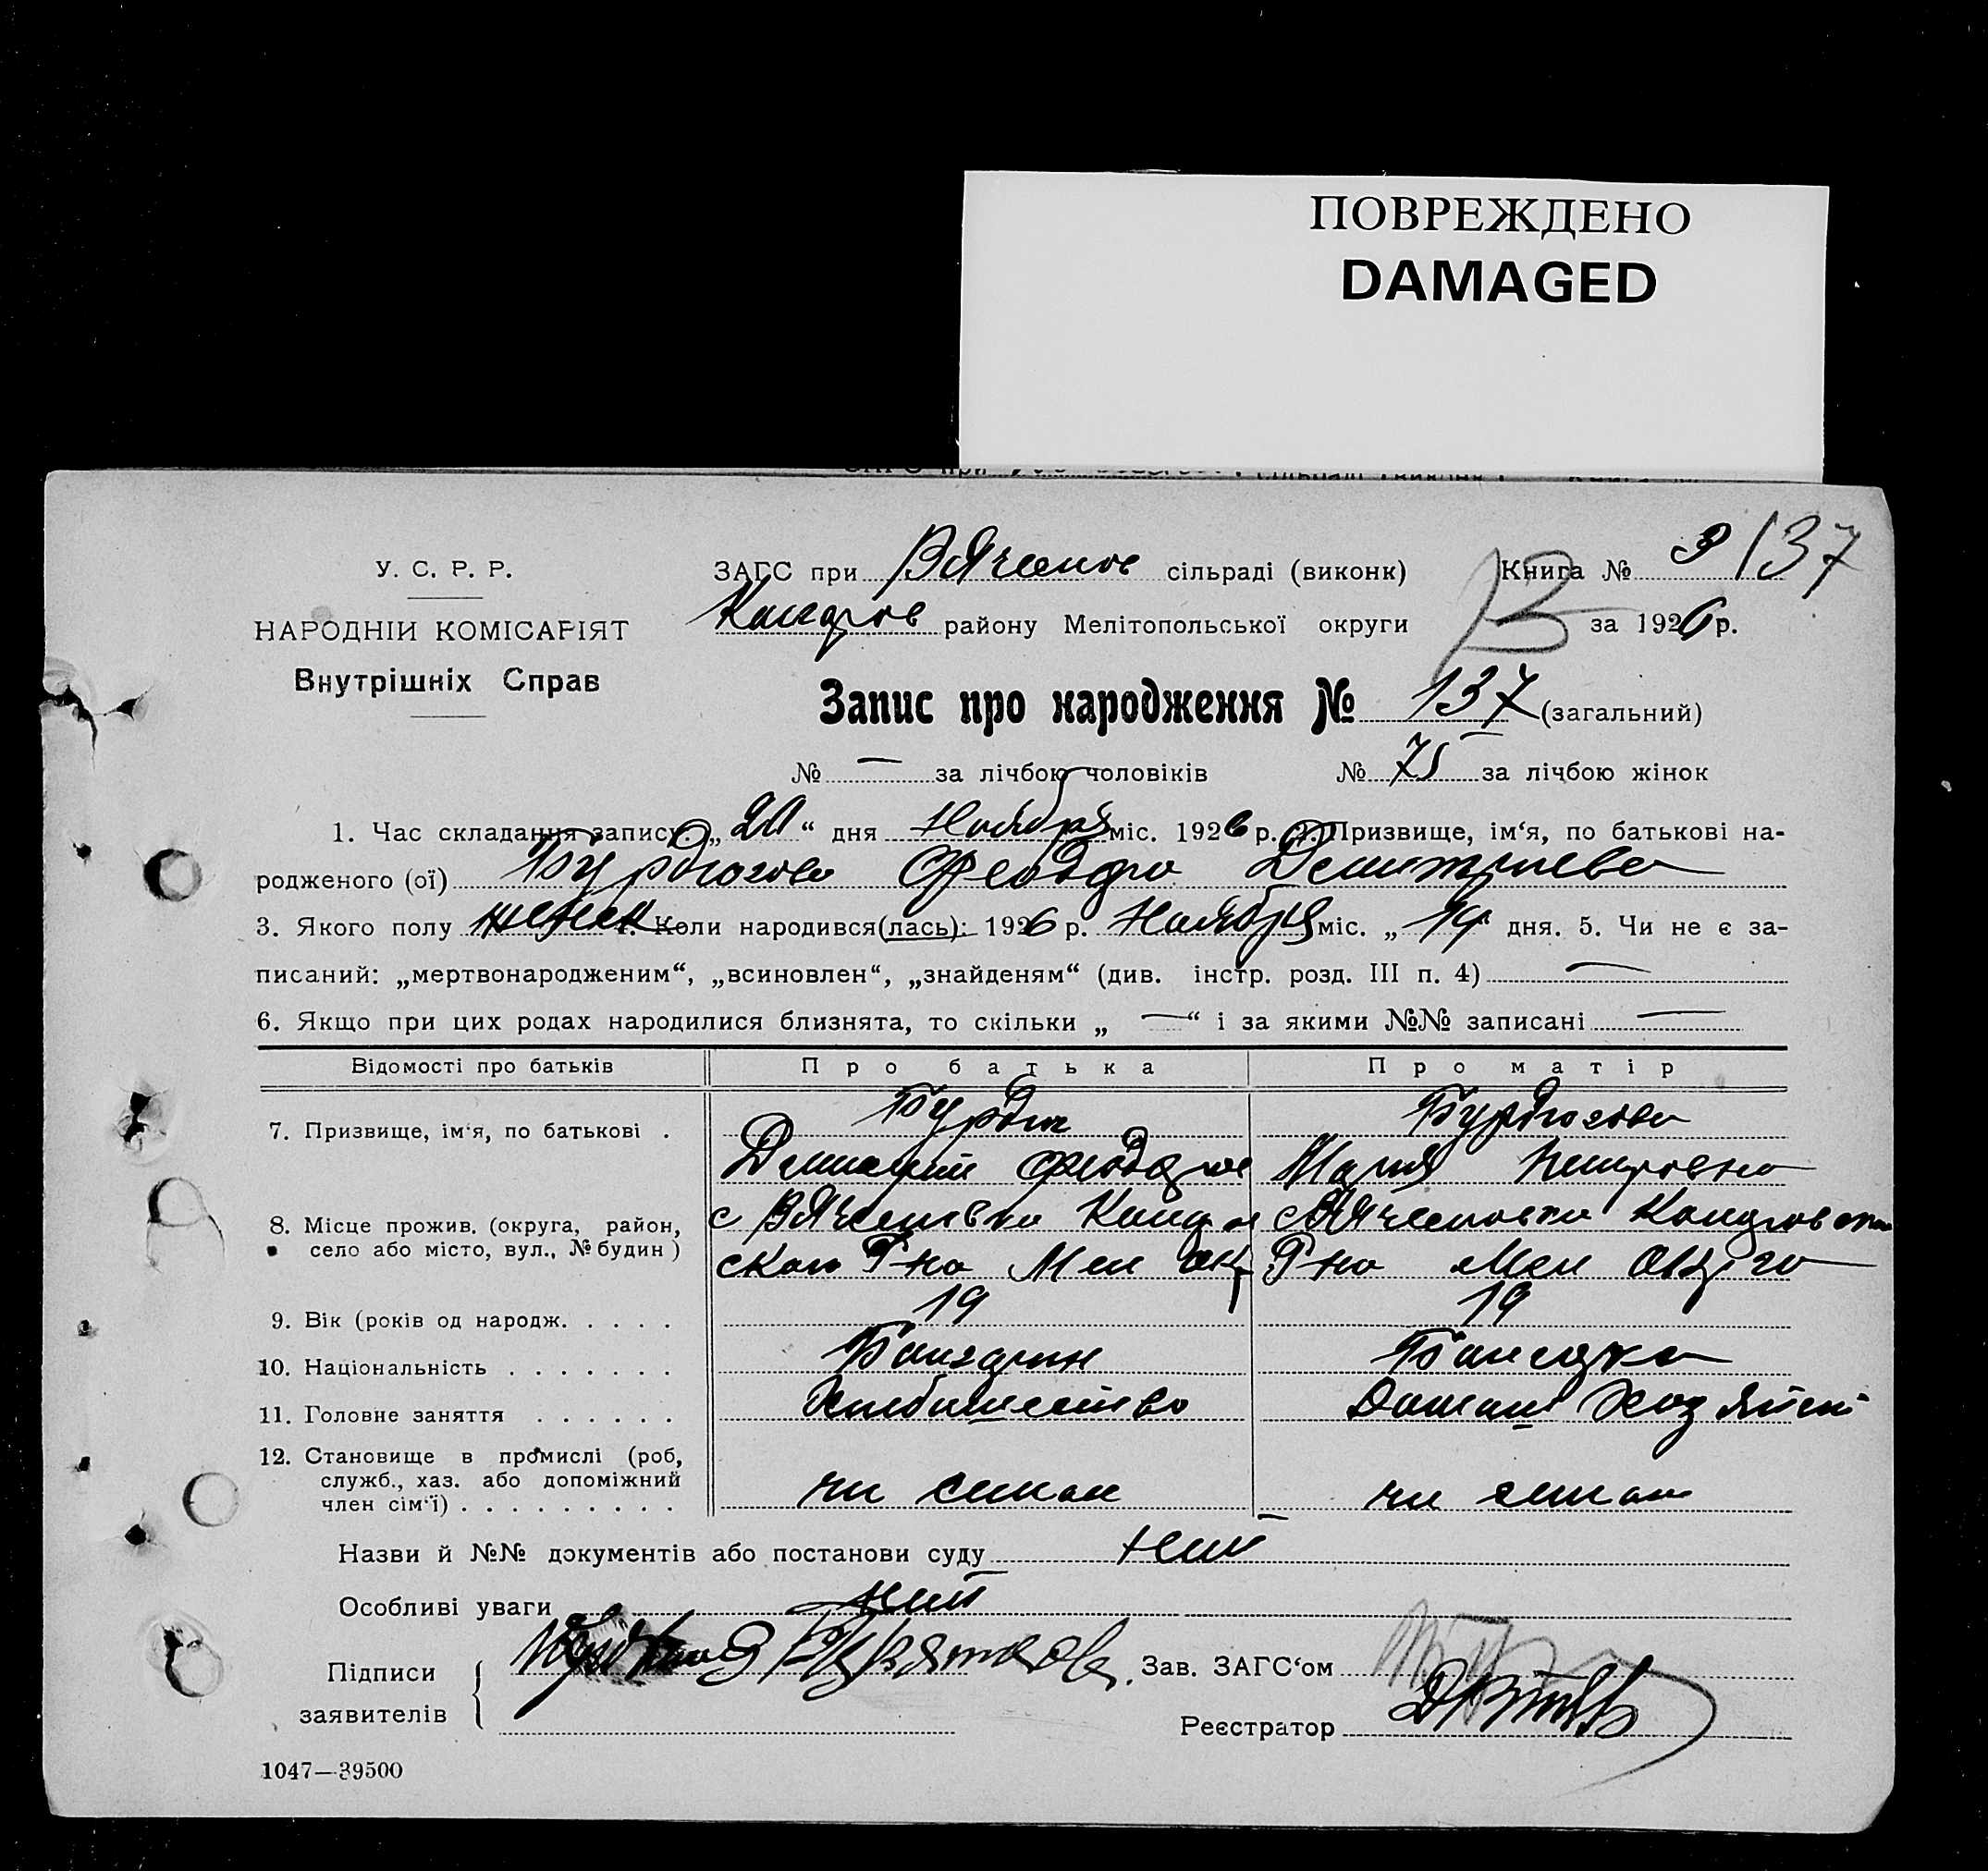 ПОВРЕЖДЕНО
DAMAGED
137
У. С. Р. Р.
НАРОДНІЙ КОМІСАРІЯТ
Внутрішніх Справ
ЗАГС при Вячеслов сільраді (виконк) Книга № 3
району Мелітопольської округи за 1926 р.
Запис про народження № 137 (загальний)
№ — за лічбою чоловіків № 75 за лічбою жінок
1. Час складання запису: „20“ дня Ноября міс. 1926 р. 2. Призвище, ім‘я, по батькові на-
родженого (ої) Феодора Дмитриева
3. Якого полу женск 4. Коли народився(лась): 1926 р. Ноября міс. „19“ дня. 5. Чи не є за-
писаний: „мертвонародженим“, „всиновлен“, „знайденям“ (див. інстр. розд. III п. 4) —
6. Якщо при цих родах народилися близнята, то скільки „ — “ і за якими №№ записані —
Відомості про батьків Про батька Про матір
7. Призвище, ім‘я, по батькові .
Дмитрий Феодоров Мария Петровна
8. Місце прожив. (округа, район,
село або місто, вул., № будин )
р на Мел окр р на Мел окр го
9. Вік (років од народж. . . . . 19 19
10. Національність . . . . . . . Болгарин Болгарка
11. Головне заняття . . . . . . Хлебопашество Домаш Хозяйст
12. Становище в промислі (роб,
служб., хаз. або допоміжний
член сім‘ї) . . . . . . . . . чл семьи чл семьи
Назви й №№ документів або постанови суду нет
Особливі уваги нет
Підписи
заявителів
Зав. ЗАГС‘ом
Реєстратор
1047—39500